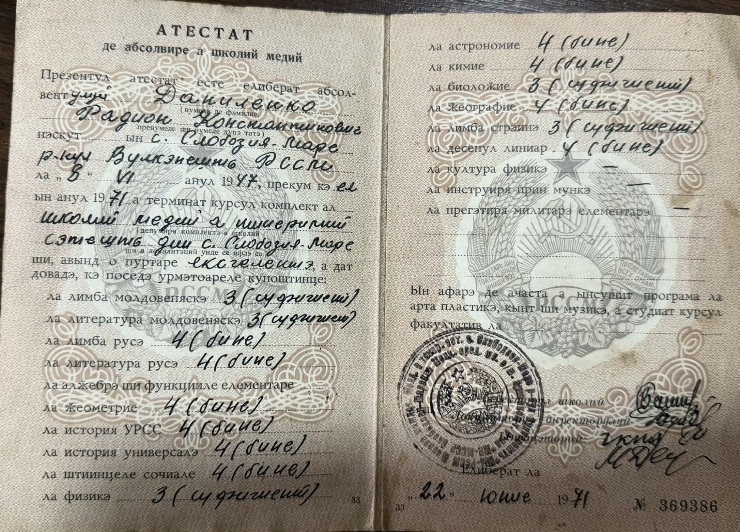 АТЕСТАТ
де абсолвире а школий медий
Презентул атестат есте елиберат абсол-
вент улуй Даниленко
(нумеле де фамилие)
Радион Константинович
пренумеле ши нумеле дупэ татэ
нэскут ын с. Слобозия-Маре
р-нул Вулкэнешть РССМ
ла „8" VI анул 1947, прекум кэ ел
ын анул 1971 а терминат курсул комплект ал
школий медий а тинеримий
(денумиря комплектэ а школий
сэтешть дин с. Слобозия-Маре
ши а локалитэций унде се афлэ еа)
ши, авынд о пуртаре екселентэ, а дат
довадэ, кэ поседэ урмэтоареле куноштинце:
ла лимба молдовеняскэ 3 (суфичиент)
ла литература молдовеняскэ 3 (суфичиент)
ла лимба русэ 4 (бине)
ла литература русэ 4 (бине)
ла алжебрэ ши функцииле елементаре
ла жеометрие 4 (бине)
ла история УРСС 4 (бине)
ла история универсалэ 4 (бине)
ла штиинцеле сочиале 4 (бине)
ла физикэ 3 (суфичиент)
33
ла астрономие 4 (бине)
ла химие 4 (бине)
ла биоложие 3 (суфичиент)
ла жеографие 4 (бине)
ла лимба стрaинэ 3 (суфичиент)
ла десенул линиар 4 (бине)
ла култура физикэ —
ла инструиря прин мункэ —
ла прегэтиря милитарэ елементарэ —
РССМ
Ын афарэ де ачаста а ынсушит програма ла
арта пластикэ, кынт ши музикэ, а студиат курсул
факултатив ла
Директорул школий
Елиберат ла
33
„22" юние 1971
№ 369386